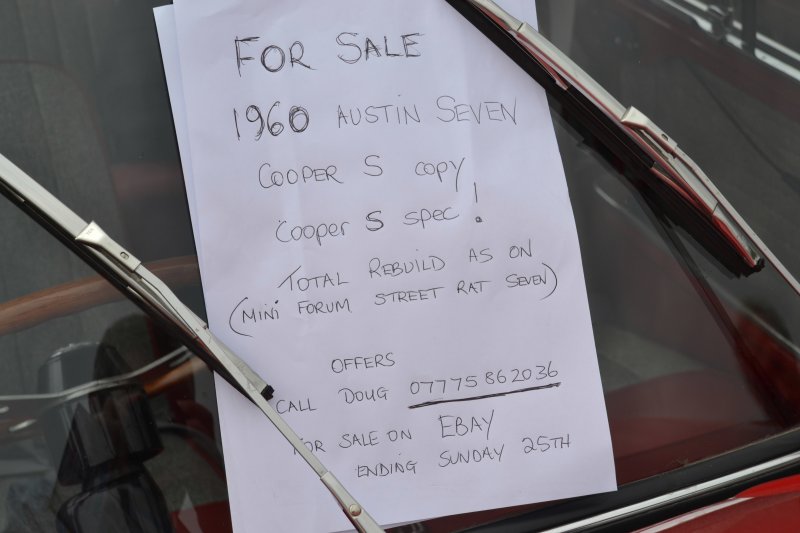 FOR SALE
1960 AUSTIN SEVEN
COOPER S COPY
Cooper S SPEC!
TOTAL REBUILD AS ON
(MINI FORUM STREET RAT SEVEN)
OFFERS
CALL DOUG 07775862036
FOR SALE ON EBAY
ENDING SUNDAY 25TH